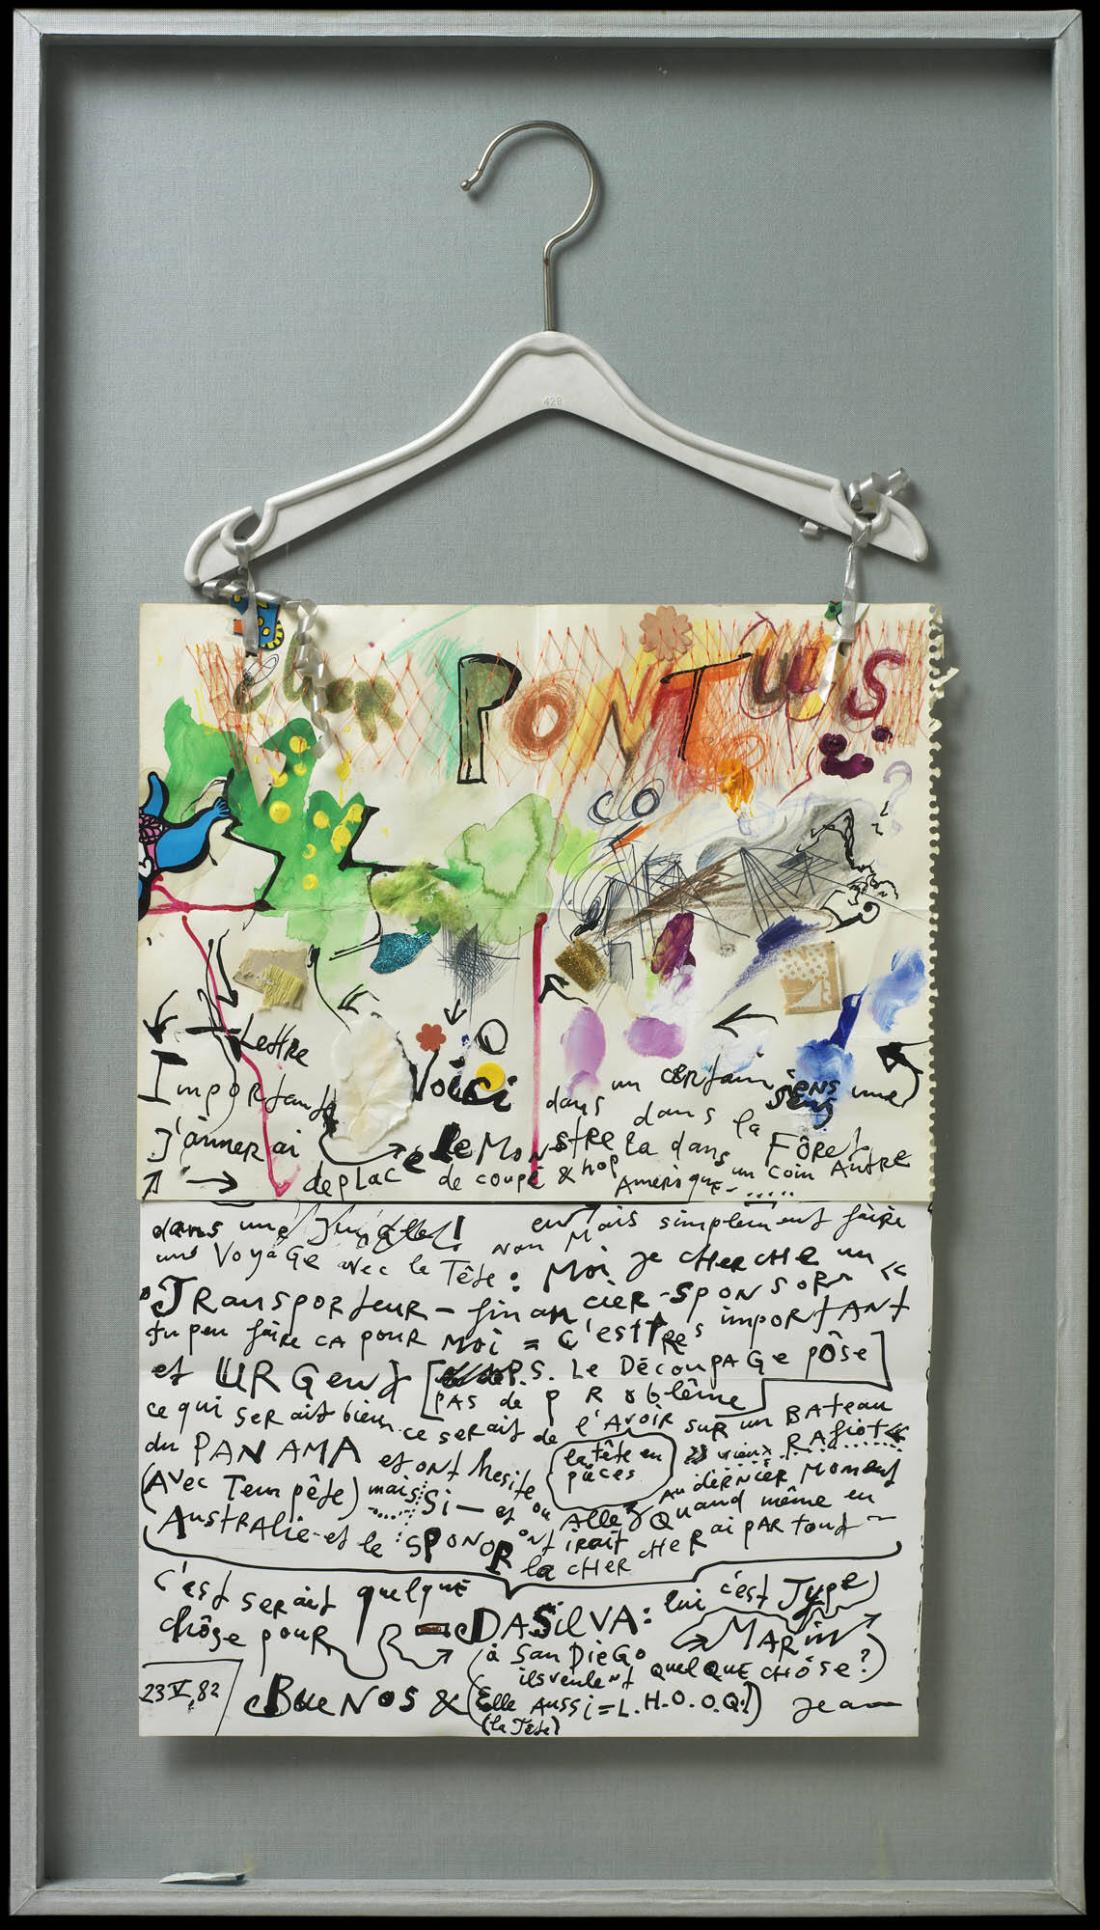 428
cher PONTUS
Lettre
Importante
Voici
dans un certain sens une
J'aimerai
le Monstre la dans la Fôret
deplacé de coupé & hop Amerique un coin Autre
dans une Jungle!
Non Mais simplement faire
un Voyage avec la Tête: Moi je cherche un
Transporteur-financier-sponsor
tu peu faire ca pour moi = c'est très important
et URGent [P.S. Le Découpage pôse
pas de problême]
ce qui serait bien ce serait de l'Avoir sur un Bateau
du PANAMA et ont hesite
la tête en
pièces
vieux Rafiot
(Avec Tempête) mais Si- et ou Allez Au dernier Moment
Quand même en
Australie-et le SPONOR ont irait
la chercherai partout
c'est serait quelque
chôse pour
DASilVA: lui c'est Type
MARin
à San Diego
ils veulent quelque chôse?)
23 V, 82
BueNOS & (Elle Aussi = L.H.O.O.Q.!)
(la Tête)
Jean